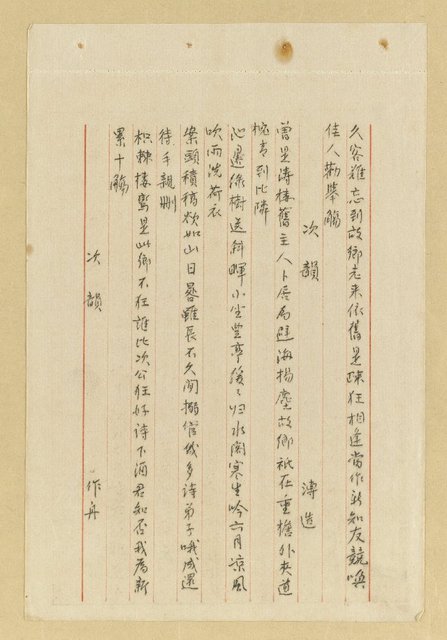 久客難忘到故鄉老來依舊是踈狂相逢當作新知友競喚
佳人勸舉觴
次韻 溥造
曾是詩樓舊主人卜居為避海揚塵故鄉祇在重檐外夾道
槐青到比隣
池邊綠樹送斜暉小坐亭緩々归水閣寒生吟六月涼風
吹雨洗荷衣
案頭積稿欲如山日晷雖長不久閒多詩弟子哦成還
待手親刪
枳棘棲鸞是此鄉不狂誰比次公狂好詩下酒君知否我為新
累十觴
次韻 作舟